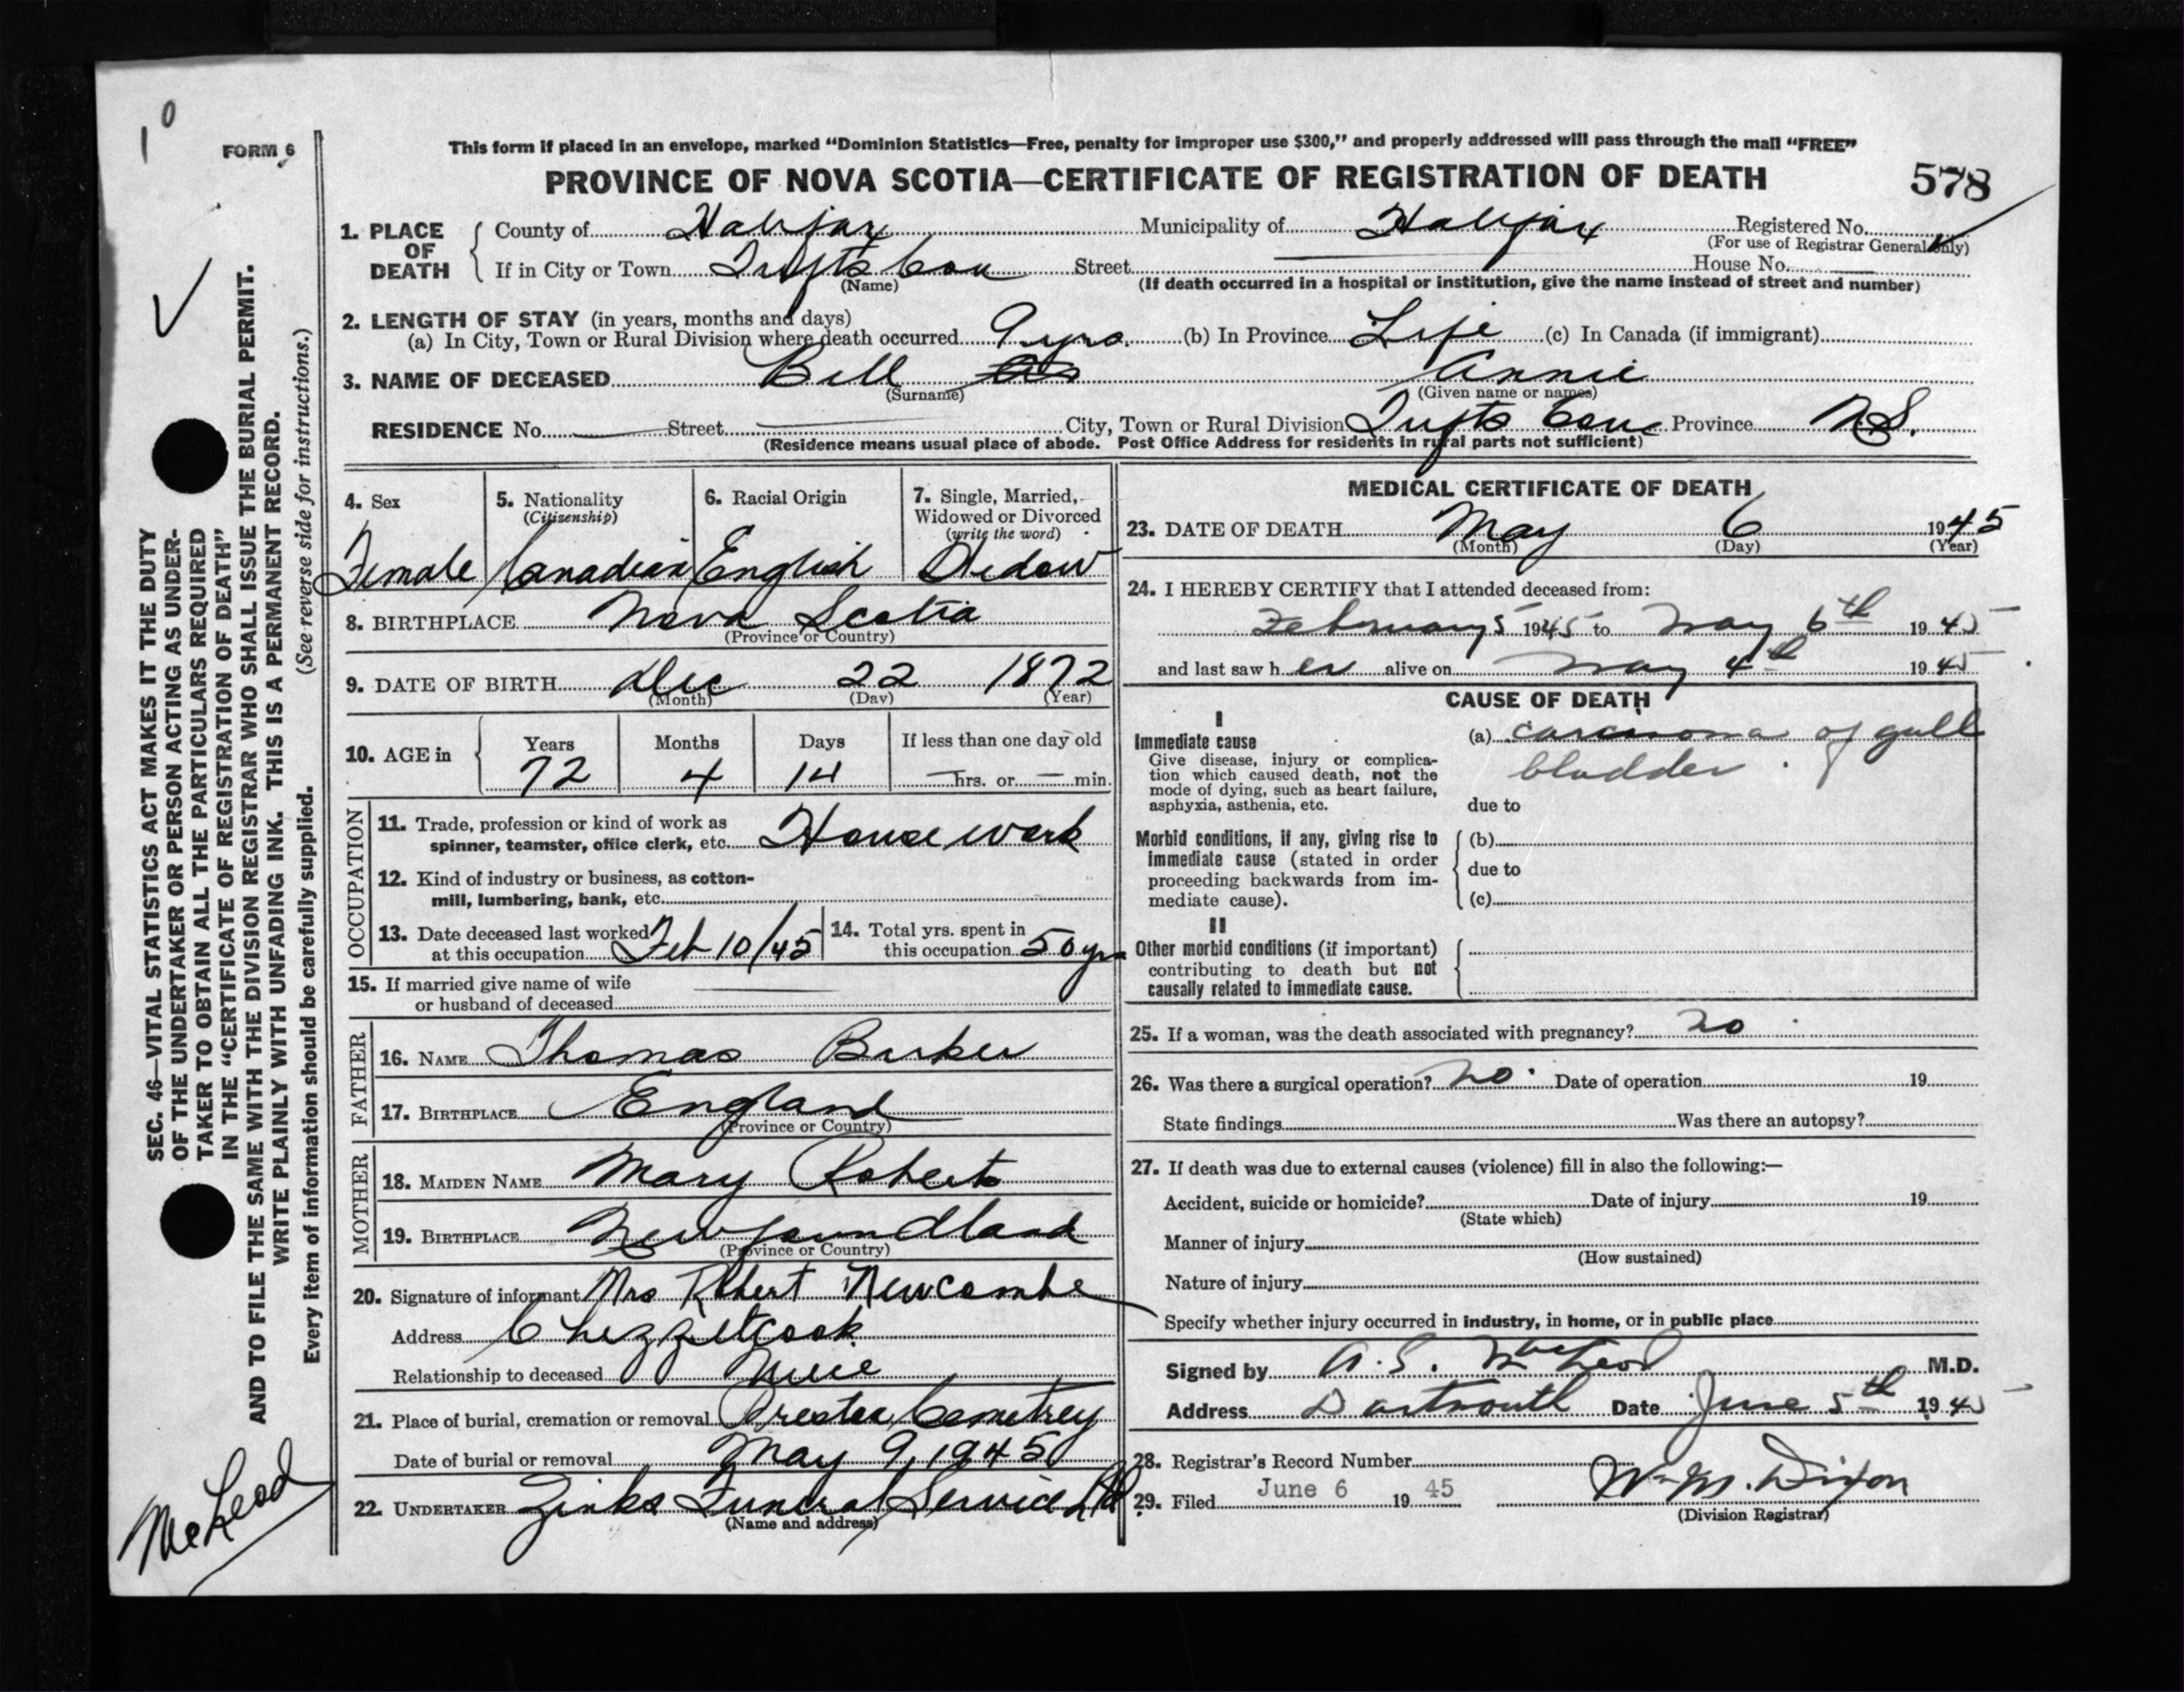 10
FORM 6
This form if placed in an envelope, marked "Dominion Statistics—Free, penalty for improper use $300," and properly addressed will pass through the mail "FREE"
PROVINCE OF NOVA SCOTIA—CERTIFICATE OF REGISTRATION OF DEATH
578
1. PLACE OF DEATH County of Halifax Municipality of Halifax Registered No.
(For use of Registrar General only)
If in City or Town Tufts Cove Street House No.
(Name) (If death occurred in a hospital or institution, give the name instead of street and number)
2. LENGTH OF STAY (in years, months and days)
(a) In City, Town or Rural Division where death occurred 9 yrs. (b) In Province Life (c) In Canada (if immigrant)
3. NAME OF DECEASED Bell Annie
(Surname) (Given name or names)
RESIDENCE No. Street City, Town or Rural Division Tufts Cove Province N.S.
(Residence means usual place of abode. Post Office Address for residents in rural parts not sufficient)
4. Sex
Female
5. Nationality
(Citizenship)
Canadian
6. Racial Origin
English
7. Single, Married,
Widowed or Divorced
(write the word)
Widow
8. BIRTHPLACE Nova Scotia
(Province or Country)
9. DATE OF BIRTH Dec 22 1872
(Month) (Day) (Year)
10. AGE in Years Months Days If less than one day old
72 4 14 hrs. or min.
OCCUPATION
11. Trade, profession or kind of work as
spinner, teamster, office clerk, etc. House work
12. Kind of industry or business, as cotton-
mill, lumbering, bank, etc.
13. Date deceased last worked
at this occupation Feb 10/45
14. Total yrs. spent in
this occupation 50 yrs
15. If married give name of wife
or husband of deceased
FATHER
16. NAME Thomas Barker
17. BIRTHPLACE England
(Province or Country)
MOTHER
18. MAIDEN NAME Mary Roberts
19. BIRTHPLACE Newfoundland
(Province or Country)
20. Signature of informant Mrs Robert Newcombe
Address Chezzetcook
Relationship to deceased Niece
21. Place of burial, cremation or removal Preston Cemetrey
Date of burial or removal May 9, 1945
22. UNDERTAKER Zinks Funeral Service Ltd
(Name and address)
MEDICAL CERTIFICATE OF DEATH
23. DATE OF DEATH May 6 1945
(Month) (Day) (Year)
24. I HEREBY CERTIFY that I attended deceased from:
February 5 1945 to May 6th 1945
and last saw her alive on May 4th 1945
CAUSE OF DEATH
I
Immediate cause
Give disease, injury or complica-
tion which caused death, not the
mode of dying, such as heart failure,
asphyxia, asthenia, etc.
(a) carcinoma of gall
bladder.
due to
Morbid conditions, if any, giving rise to
immediate cause (stated in order
proceeding backwards from im-
mediate cause).
(b)
due to
(c)
II
Other morbid conditions (if important)
contributing to death but not
causally related to immediate cause.
25. If a woman, was the death associated with pregnancy? no
26. Was there a surgical operation? no. Date of operation 19
State findings Was there an autopsy?
27. If death was due to external causes (violence) fill in also the following:—
Accident, suicide or homicide? Date of injury 19
(State which)
Manner of injury
(How sustained)
Nature of injury
Specify whether injury occurred in industry, in home, or in public place
Signed by A. S. MacLeod M.D.
Address Dartmouth Date June 5th 1945
28. Registrar's Record Number
29. Filed June 6 1945 Wm M. Dixon
(Division Registrar)
SEC. 46—VITAL STATISTICS ACT MAKES IT THE DUTY
OF THE UNDERTAKER OR PERSON ACTING AS UNDER-
TAKER TO OBTAIN ALL THE PARTICULARS REQUIRED
IN THE "CERTIFICATE OF REGISTRATION OF DEATH"
AND TO FILE THE SAME WITH THE DIVISION REGISTRAR WHO SHALL ISSUE THE BURIAL PERMIT.
WRITE PLAINLY WITH UNFADING INK. THIS IS A PERMANENT RECORD.
Every item of information should be carefully supplied. (See reverse side for instructions.)
McLeod